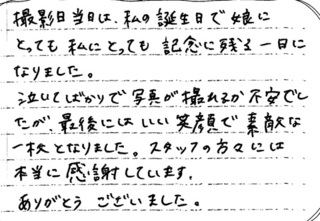 撮影日当日は、私の誕生日で娘に
とっても私にとっても記念に残る一日に
なりました。
泣いてばかりで写真が撮れるか不安でし
たが、最後にはいい笑顔で素敵な
一枚となりました。スタッフの方々には
本当に感謝しています。
ありがとうございました。